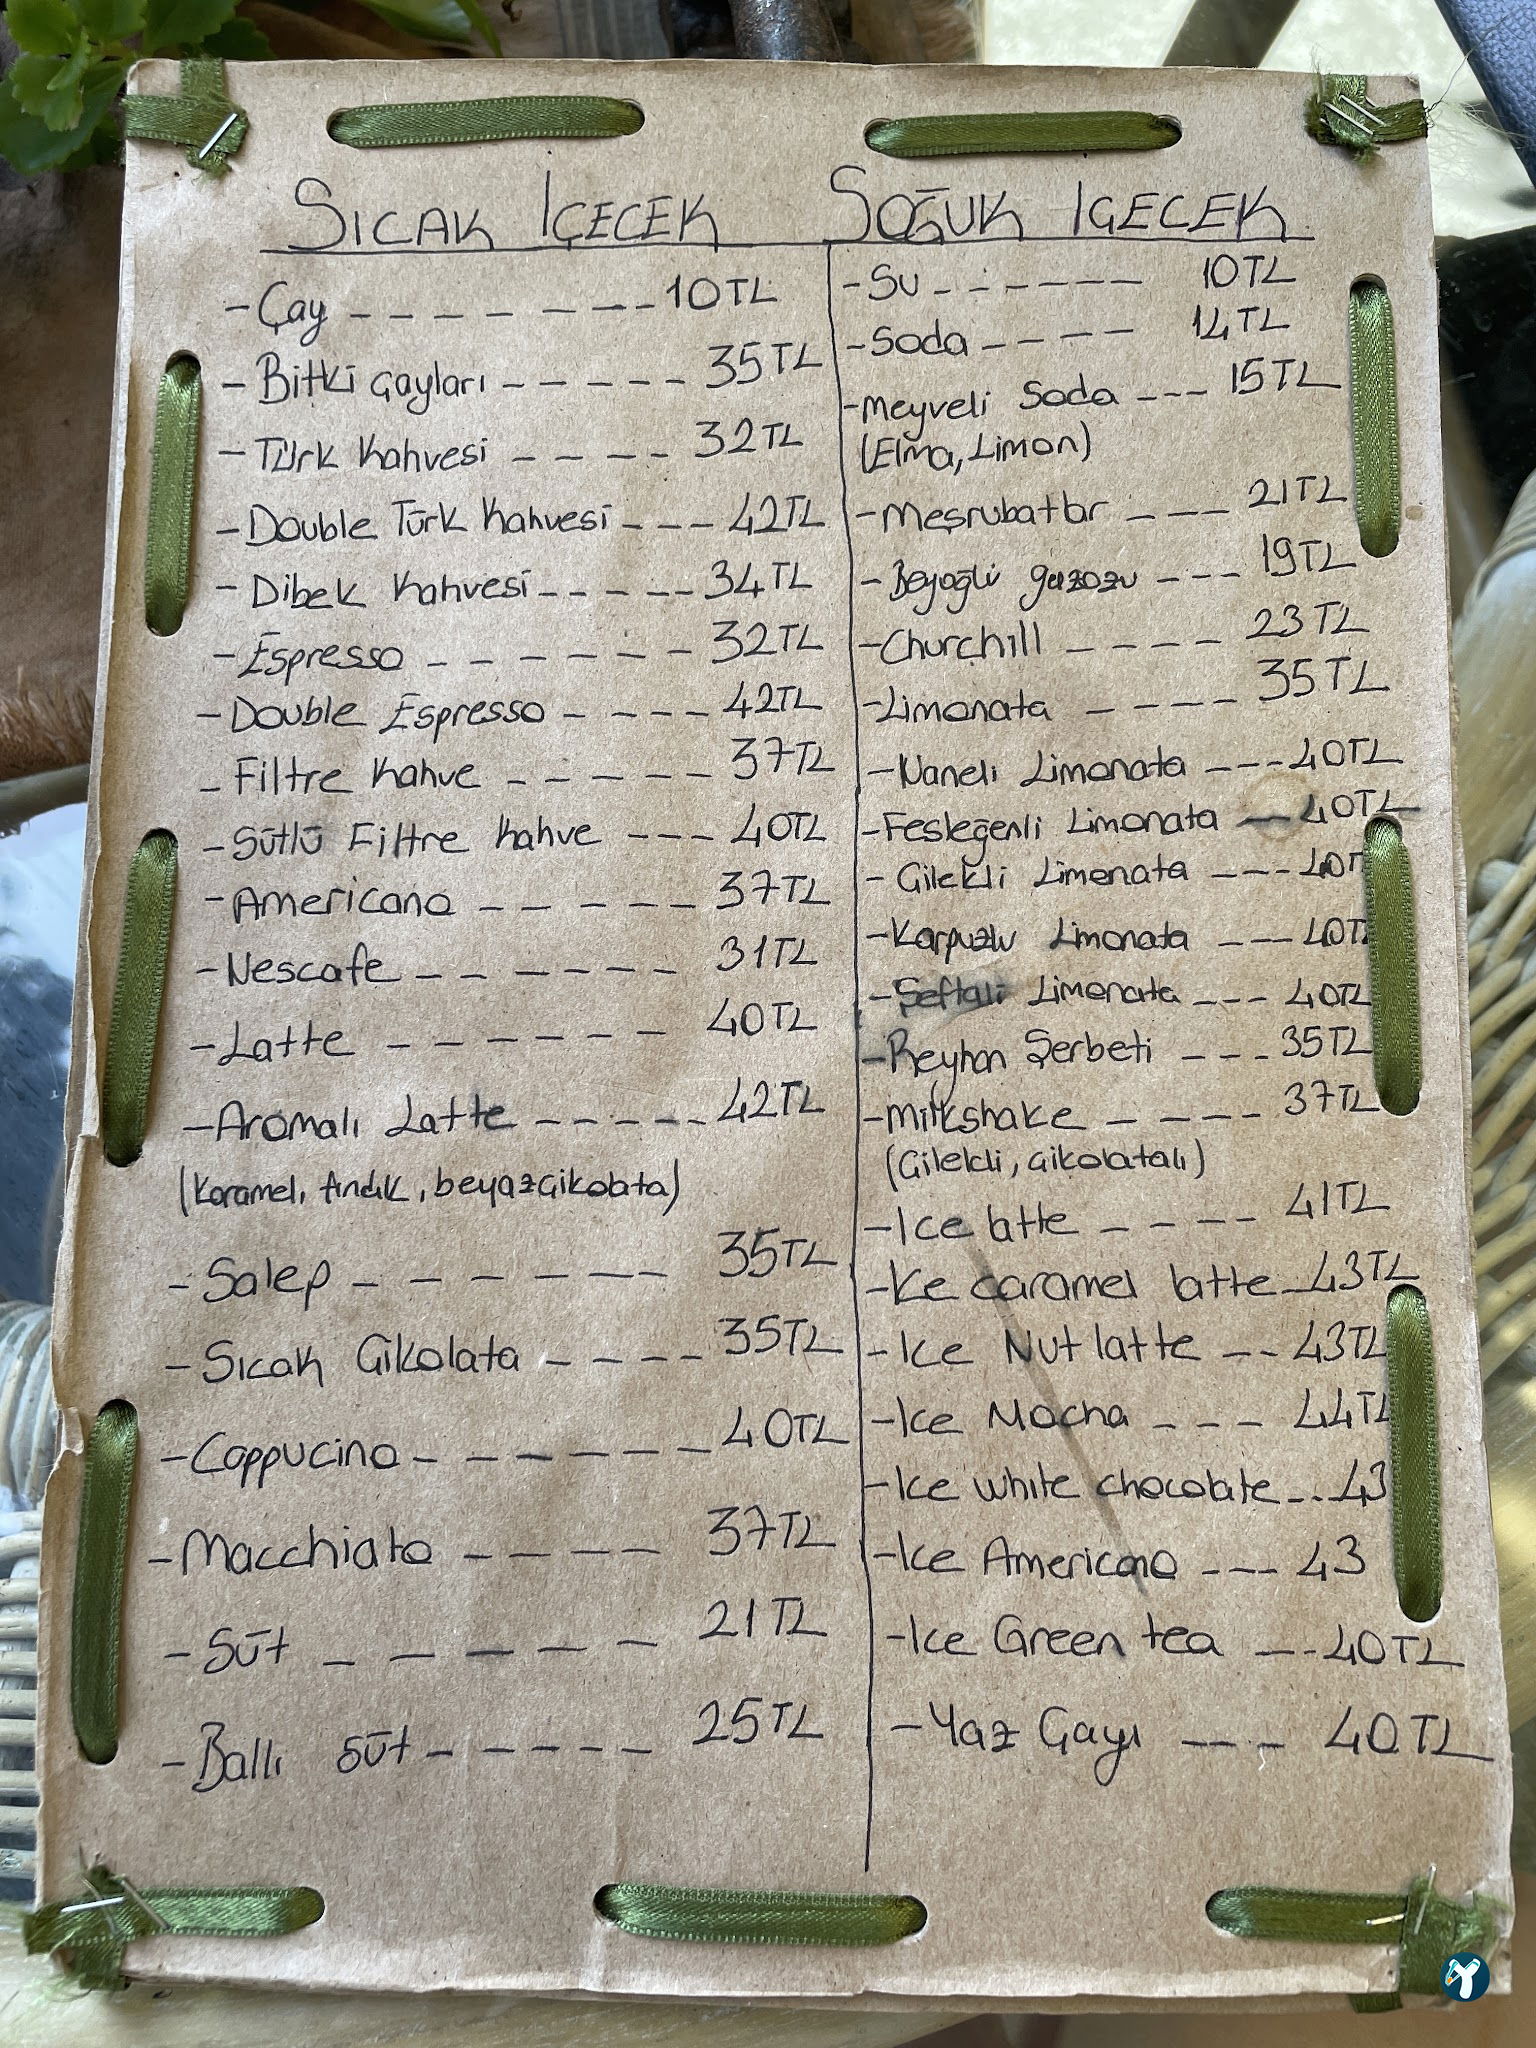 SICAK İÇECEK
- Çay - - - - - - - - 10TL
- Bitki çayları - - - - - 35TL
- Türk Kahvesi - - - - 32TL
- Double Türk Kahvesi - - - 42TL
- Dibek Kahvesi - - - - - 34TL
- Espresso - - - - - - - 32TL
- Double Espresso - - - - 42TL
- Filtre Kahve - - - - - 37TL
- Sütlü Filtre Kahve - - - 40TL
- Americano - - - - - 37TL
- Nescafe - - - - - - 31TL
- Latte - - - - - - 40TL
- Aromalı Latte - - - - - 42TL
(Karamel, fındık, beyaz çikolata)
- Salep - - - - - - - 35TL
- Sıcak Çikolata - - - - 35TL
- Cappucino - - - - - - - 40TL
- Macchiato - - - - 37TL
- Süt - - - - - 21TL
- Ballı süt - - - - - 25TL
SOĞUK IÇECEK
- Su - - - - - - 10TL
- Soda - - - - 14TL
- Meyveli Soda - - - 15TL
(Elma, Limon)
- Meşrubatlar - - - 21TL
- Beyoğlu gazozu - - - 19TL
- Churchill - - - - 23TL
- Limonata - - - - 35TL
- Naneli Limonata - - - 40TL
- Fesleğenli Limonata - 40TL
- Çilekli Limonata - - - 40T
- Karpuzlu Limonata - - - 40T
- Şeftali Limonata - - - 40TL
- Reyhan Şerbeti - - - 35TL
- Milkshake - - - - 37TL
(Çilekli, çikolatalı)
- Ice latte - - - - 41TL
- Ice caramel latte - 43TL
- Ice Nut latte - - 43TL
- Ice Mocha - - - 44TL
- Ice white chocolate - - 43
- Ice Americano - - - 43
- Ice Green tea - - - 40TL
- Yaz Çayı - - - 40TL